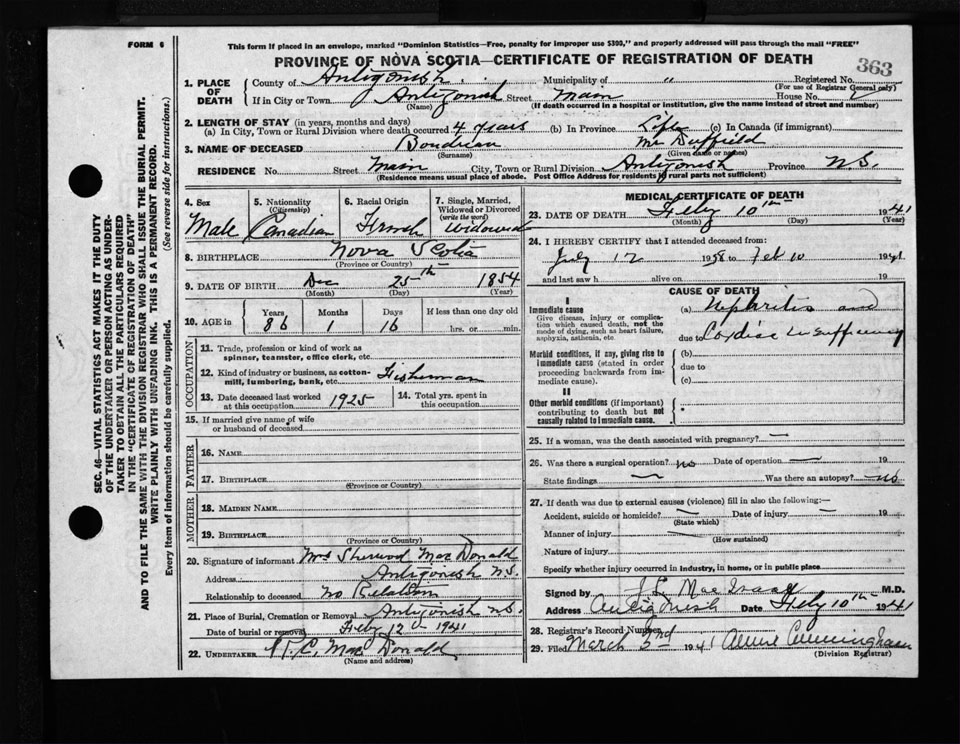 FORM 6
This form if placed in an envelope, marked "Dominion Statistics—Free, penalty for improper use $300," and properly addressed will pass through the mail "FREE"
PROVINCE OF NOVA SCOTIA—CERTIFICATE OF REGISTRATION OF DEATH
363
1. PLACE OF DEATH
County of Antigonish Municipality of " Registered No.
(For use of Registrar General only)
If in City or Town Antigonish Street Main House No.
(Name) (If death occurred in a hospital or institution, give the name instead of street and number)
2. LENGTH OF STAY (in years, months and days)
(a) In City, Town or Rural Division where death occurred 4 years (b) In Province Life (c) In Canada (if immigrant)
3. NAME OF DECEASED Boudreau Duffield
(Surname) (Given name or names)
RESIDENCE No. Street Main City, Town or Rural Division Antigonish Province N.S.
(Residence means usual place of abode. Post Office Address for residents of rural parts not sufficient)
4. Sex 5. Nationality (Citizenship) 6. Racial Origin 7. Single, Married, Widowed or Divorced (write the word)
Male Canadian French Widowed
8. BIRTHPLACE Nova Scotia
(Province or Country)
9. DATE OF BIRTH Dec 25th 1854
(Month) (Day) (Year)
10. AGE in Years Months Days If less than one day old
86 1 16 hrs. or min.
OCCUPATION
11. Trade, profession or kind of work as spinner, teamster, office clerk, etc.
12. Kind of industry or business, as cotton-mill, lumbering, bank, etc. Fisherman
13. Date deceased last worked at this occupation 1925 14. Total yrs. spent in this occupation
15. If married give name of wife or husband of deceased
FATHER
16. NAME
17. BIRTHPLACE
(Province or Country)
MOTHER
18. MAIDEN NAME
19. BIRTHPLACE
(Province or Country)
20. Signature of informant Mrs Sherwood MacDonald
Address Antigonish N.S.
Relationship to deceased no Relation
21. Place of Burial, Cremation or Removal Antigonish N.S.
Date of burial or removal Feby 12 1941
22. UNDERTAKER MacDonald
(Name and address)
MEDICAL CERTIFICATE OF DEATH
23. DATE OF DEATH Feby 10th 1941
(Month) (Day) (Year)
24. I HEREBY CERTIFY that I attended deceased from:
July 12 1938 to Feb 10 1941
and last saw h alive on 19
CAUSE OF DEATH
I
Immediate cause
Give disease, injury or complication which caused death, not the mode of dying, such as heart failure, asphyxia, asthenia, etc.
(a) Nephritis and
due to Cardiac Insufficiency
Morbid conditions, if any, giving rise to immediate cause (stated in order proceeding backwards from immediate cause).
(b)
due to
(c)
II
Other morbid conditions (if important) contributing to death but not causally related to immediate cause.
25. If a woman, was the death associated with pregnancy? —
26. Was there a surgical operation? no Date of operation — 19
State findings — Was there an autopsy? no
27. If death was due to external causes (violence) fill in also the following:—
Accident, suicide or homicide? — Date of injury — 19
(State which)
Manner of injury
(How sustained)
Nature of injury
Specify whether injury occurred in industry, in home, or in public place
Signed by MacIsaac M.D.
Address Antigonish Date Feby 10th 1941
28. Registrar's Record Number
29. Filed March 3rd 1941 Cunningham
(Division Registrar)
SEC. 46—VITAL STATISTICS ACT MAKES IT THE DUTY
OF THE UNDERTAKER OR PERSON ACTING AS UNDERTAKER
TO OBTAIN ALL THE PARTICULARS REQUIRED
IN THE "CERTIFICATE OF REGISTRATION OF DEATH"
AND TO FILE THE SAME WITH THE DIVISION REGISTRAR WHO SHALL ISSUE THE BURIAL PERMIT.
WRITE PLAINLY WITH UNFADING INK. THIS IS A PERMANENT RECORD.
Every item of information should be carefully supplied. (See reverse side for instructions.)